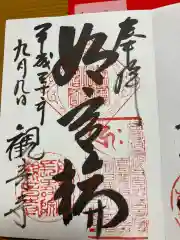 奉拝
如意輪
平成三十年
九月九日
観音寺